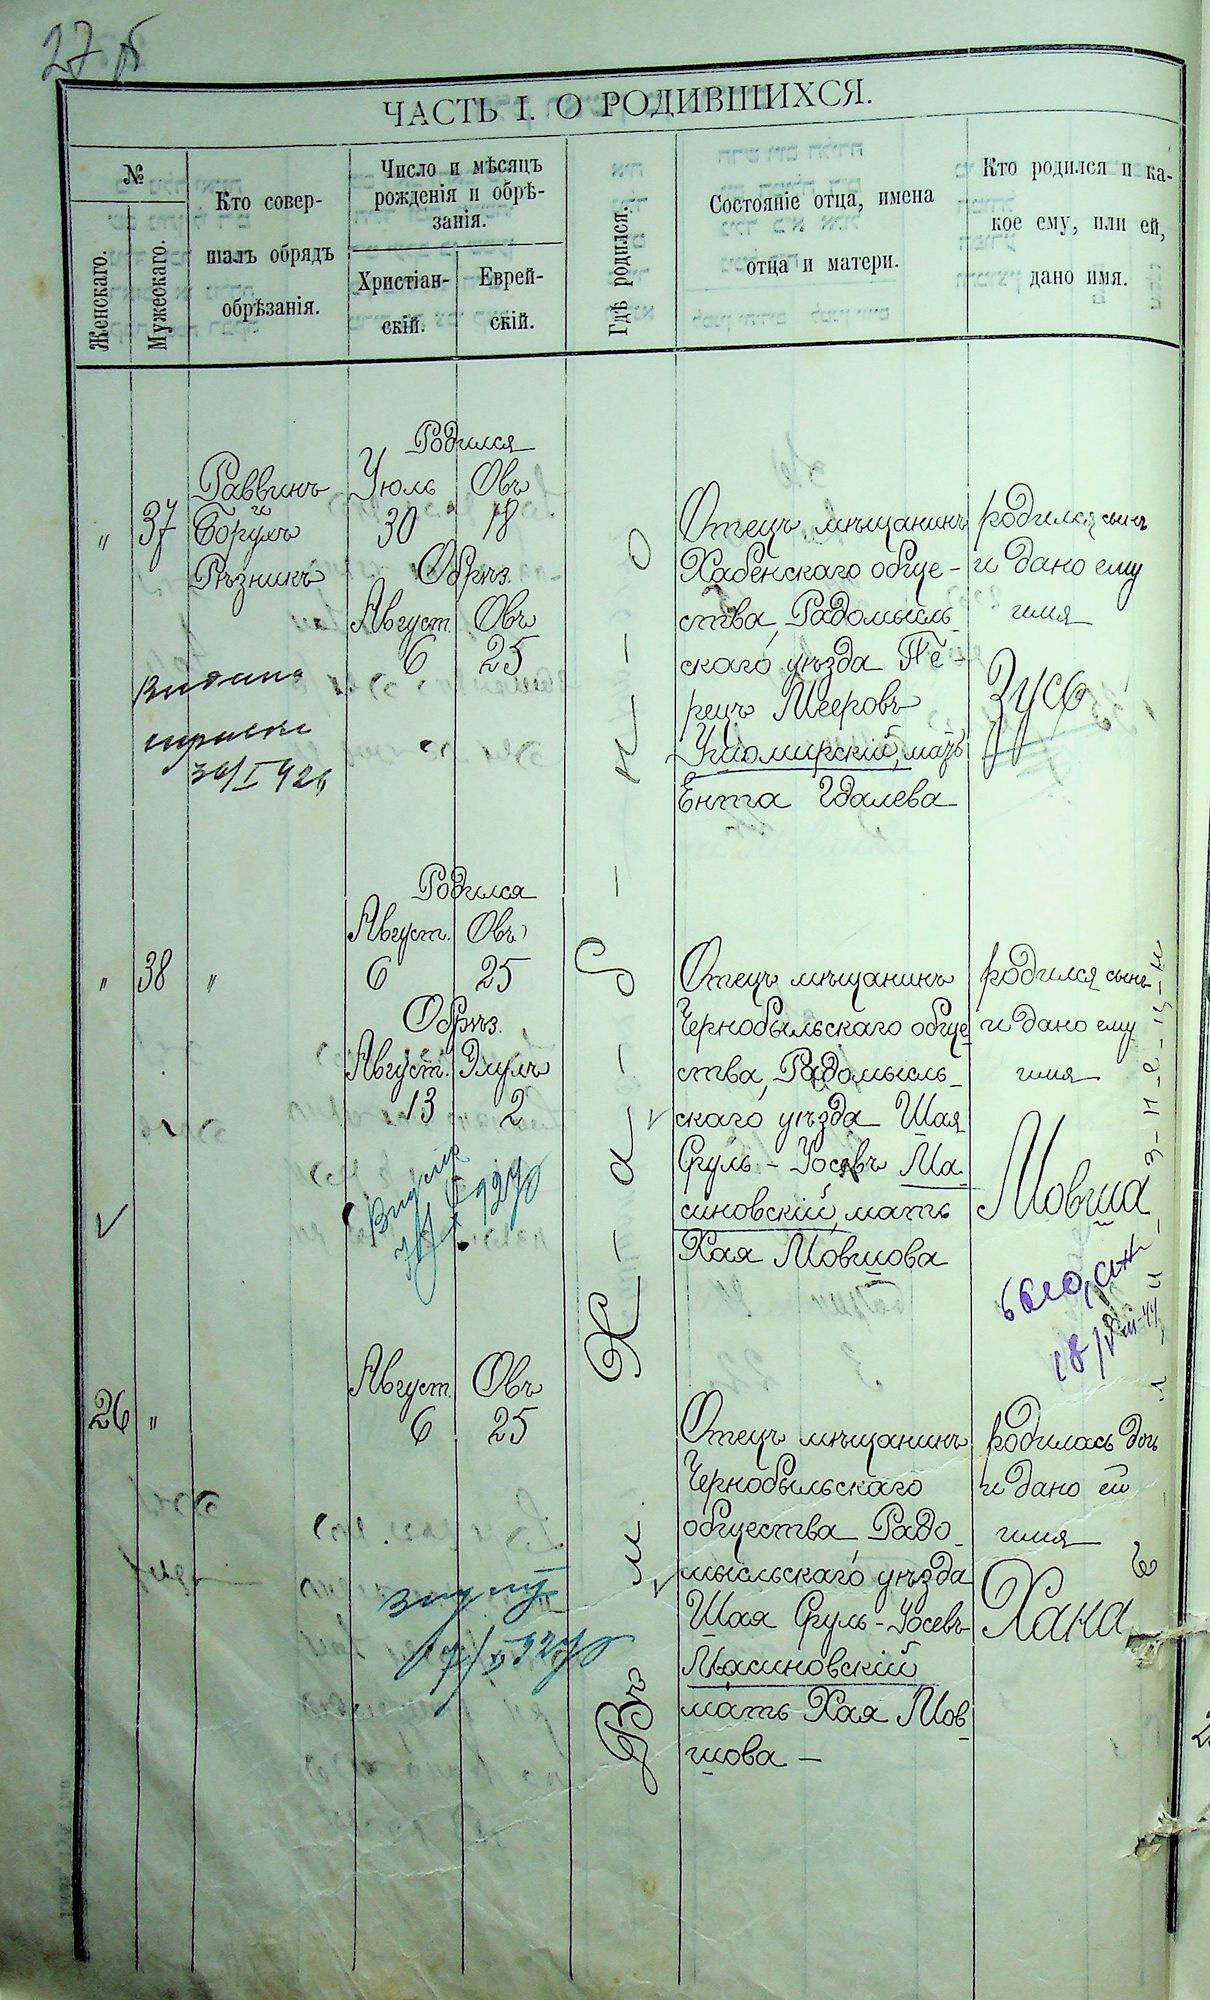 27 об
ЧАСТЬ I. О РОДИВШИХСЯ.
№
Женскаго.
Мужескаго.
Кто совер-
шалъ обрядъ
обрѣзанія.
Число и мѣсяцъ
рожденія и обрѣ-
занія.
Христіан-
скій.
Еврей-
скій.
Гдѣ родился.
Состояніе отца, имена
отца и матери.
Кто родился и ка-
кое ему, или ей,
дано имя.
Въ м. Х-а-б-н-о
"
37
Раввинъ
и
Борухъ
Рѣзникъ
Родился
Іюль Овъ
30 18
Обрѣз.
Август. Овъ
6 25
Отецъ мѣщанинъ
Хабенскаго обще-
ства, Радомысль-
скаго уѣзда Пе-
рецъ Мееровъ
Ушомирскій, мать
Ента Гдалева
родился сынъ
и дано ему
имя
Зусь
"
38
"
Родился
Август. Овъ
6 25
Обрѣз.
Август. Элулъ
13 2
Отецъ мѣщанинъ
Чернобыльскаго обще-
ства, Радомысль-
скаго уѣзда Шая
Сруль-Іосевъ Ма-
синовскій, мать
Хая Мовшова
родился сынъ
и дано ему
имя
Мовша
26
"
Август. Овъ
6 25
Отецъ мѣщанинъ
Чернобыльскаго
общества, Радо-
мысльскаго уѣзда
Шая Сруль-Іосевъ
Масиновскій
мать Хая Мов-
шова —
родилась дочь
и дано ей
имя
Хана